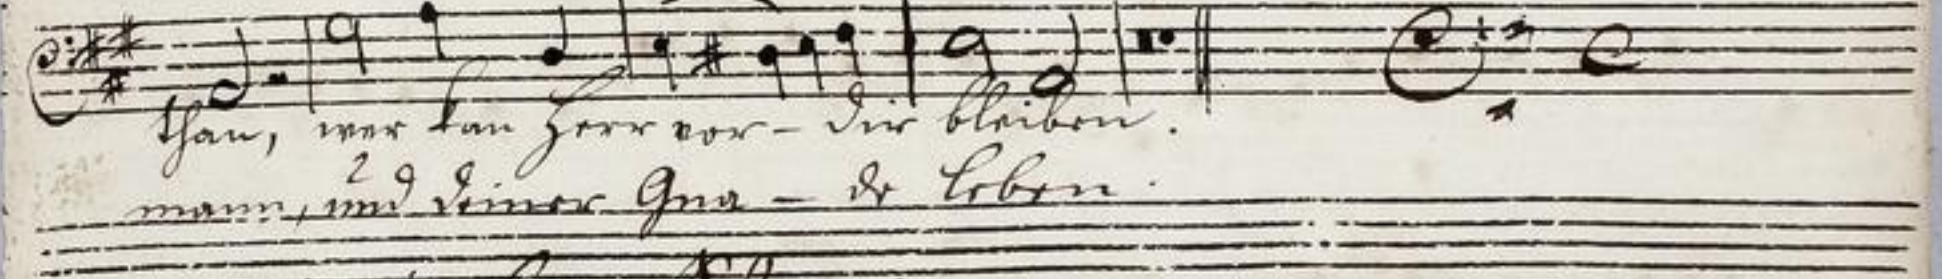 than, wer kan Herr vor - dir bleiben.
mann, und deiner Gna - de leben.